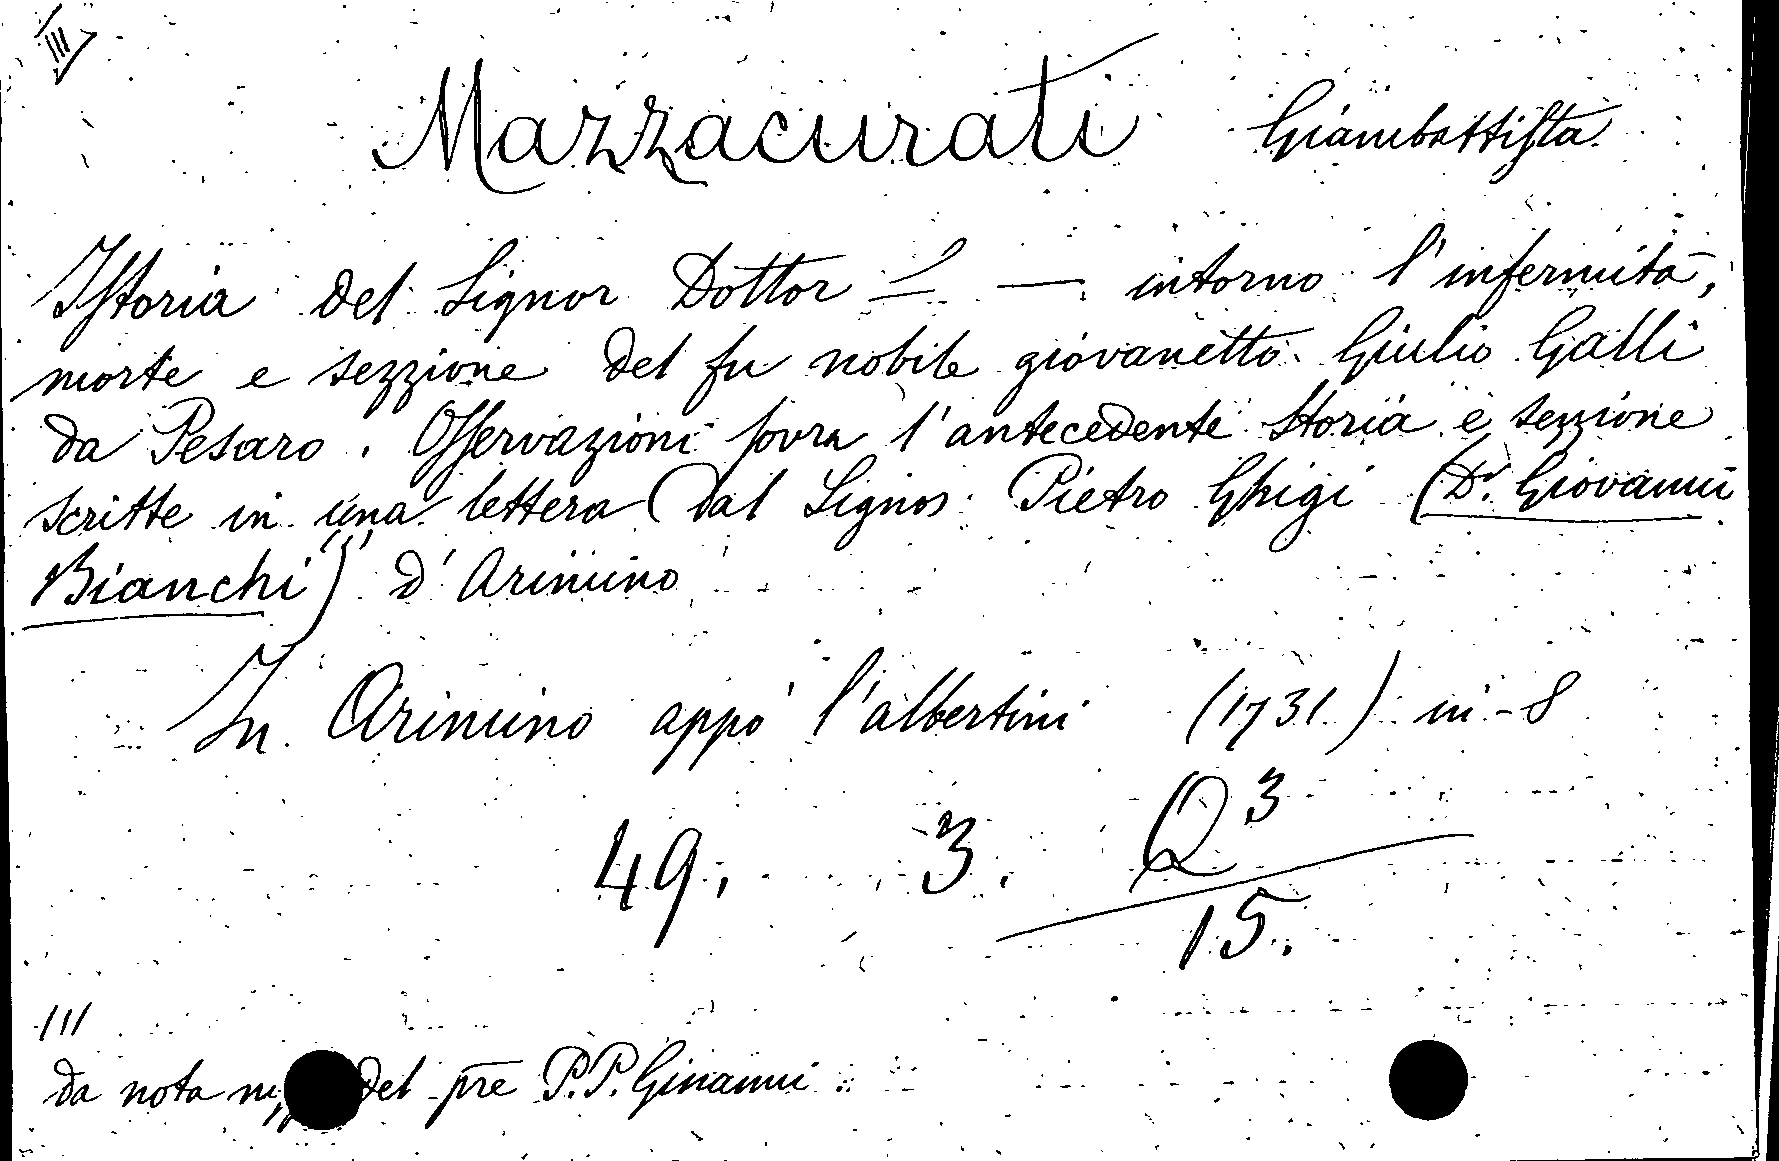 III
Mazzacurati Giambattista
Istoria del Signor Dottor — — intorno l'infermità,
morte e sezzione del fu nobile giovanetto Giulio Galli
da Pesaro. Osservazioni sovra l'antecedente storia e sezzione
scritte in una lettera dal Signor Pietro Ghigi (Dr. Giovanni
Bianchi)''' d'Arimino
In Arimino appo l'albertini (1731) in-8
49. 3. Q3
15.
III
da nota del pre P.P. Ginanni